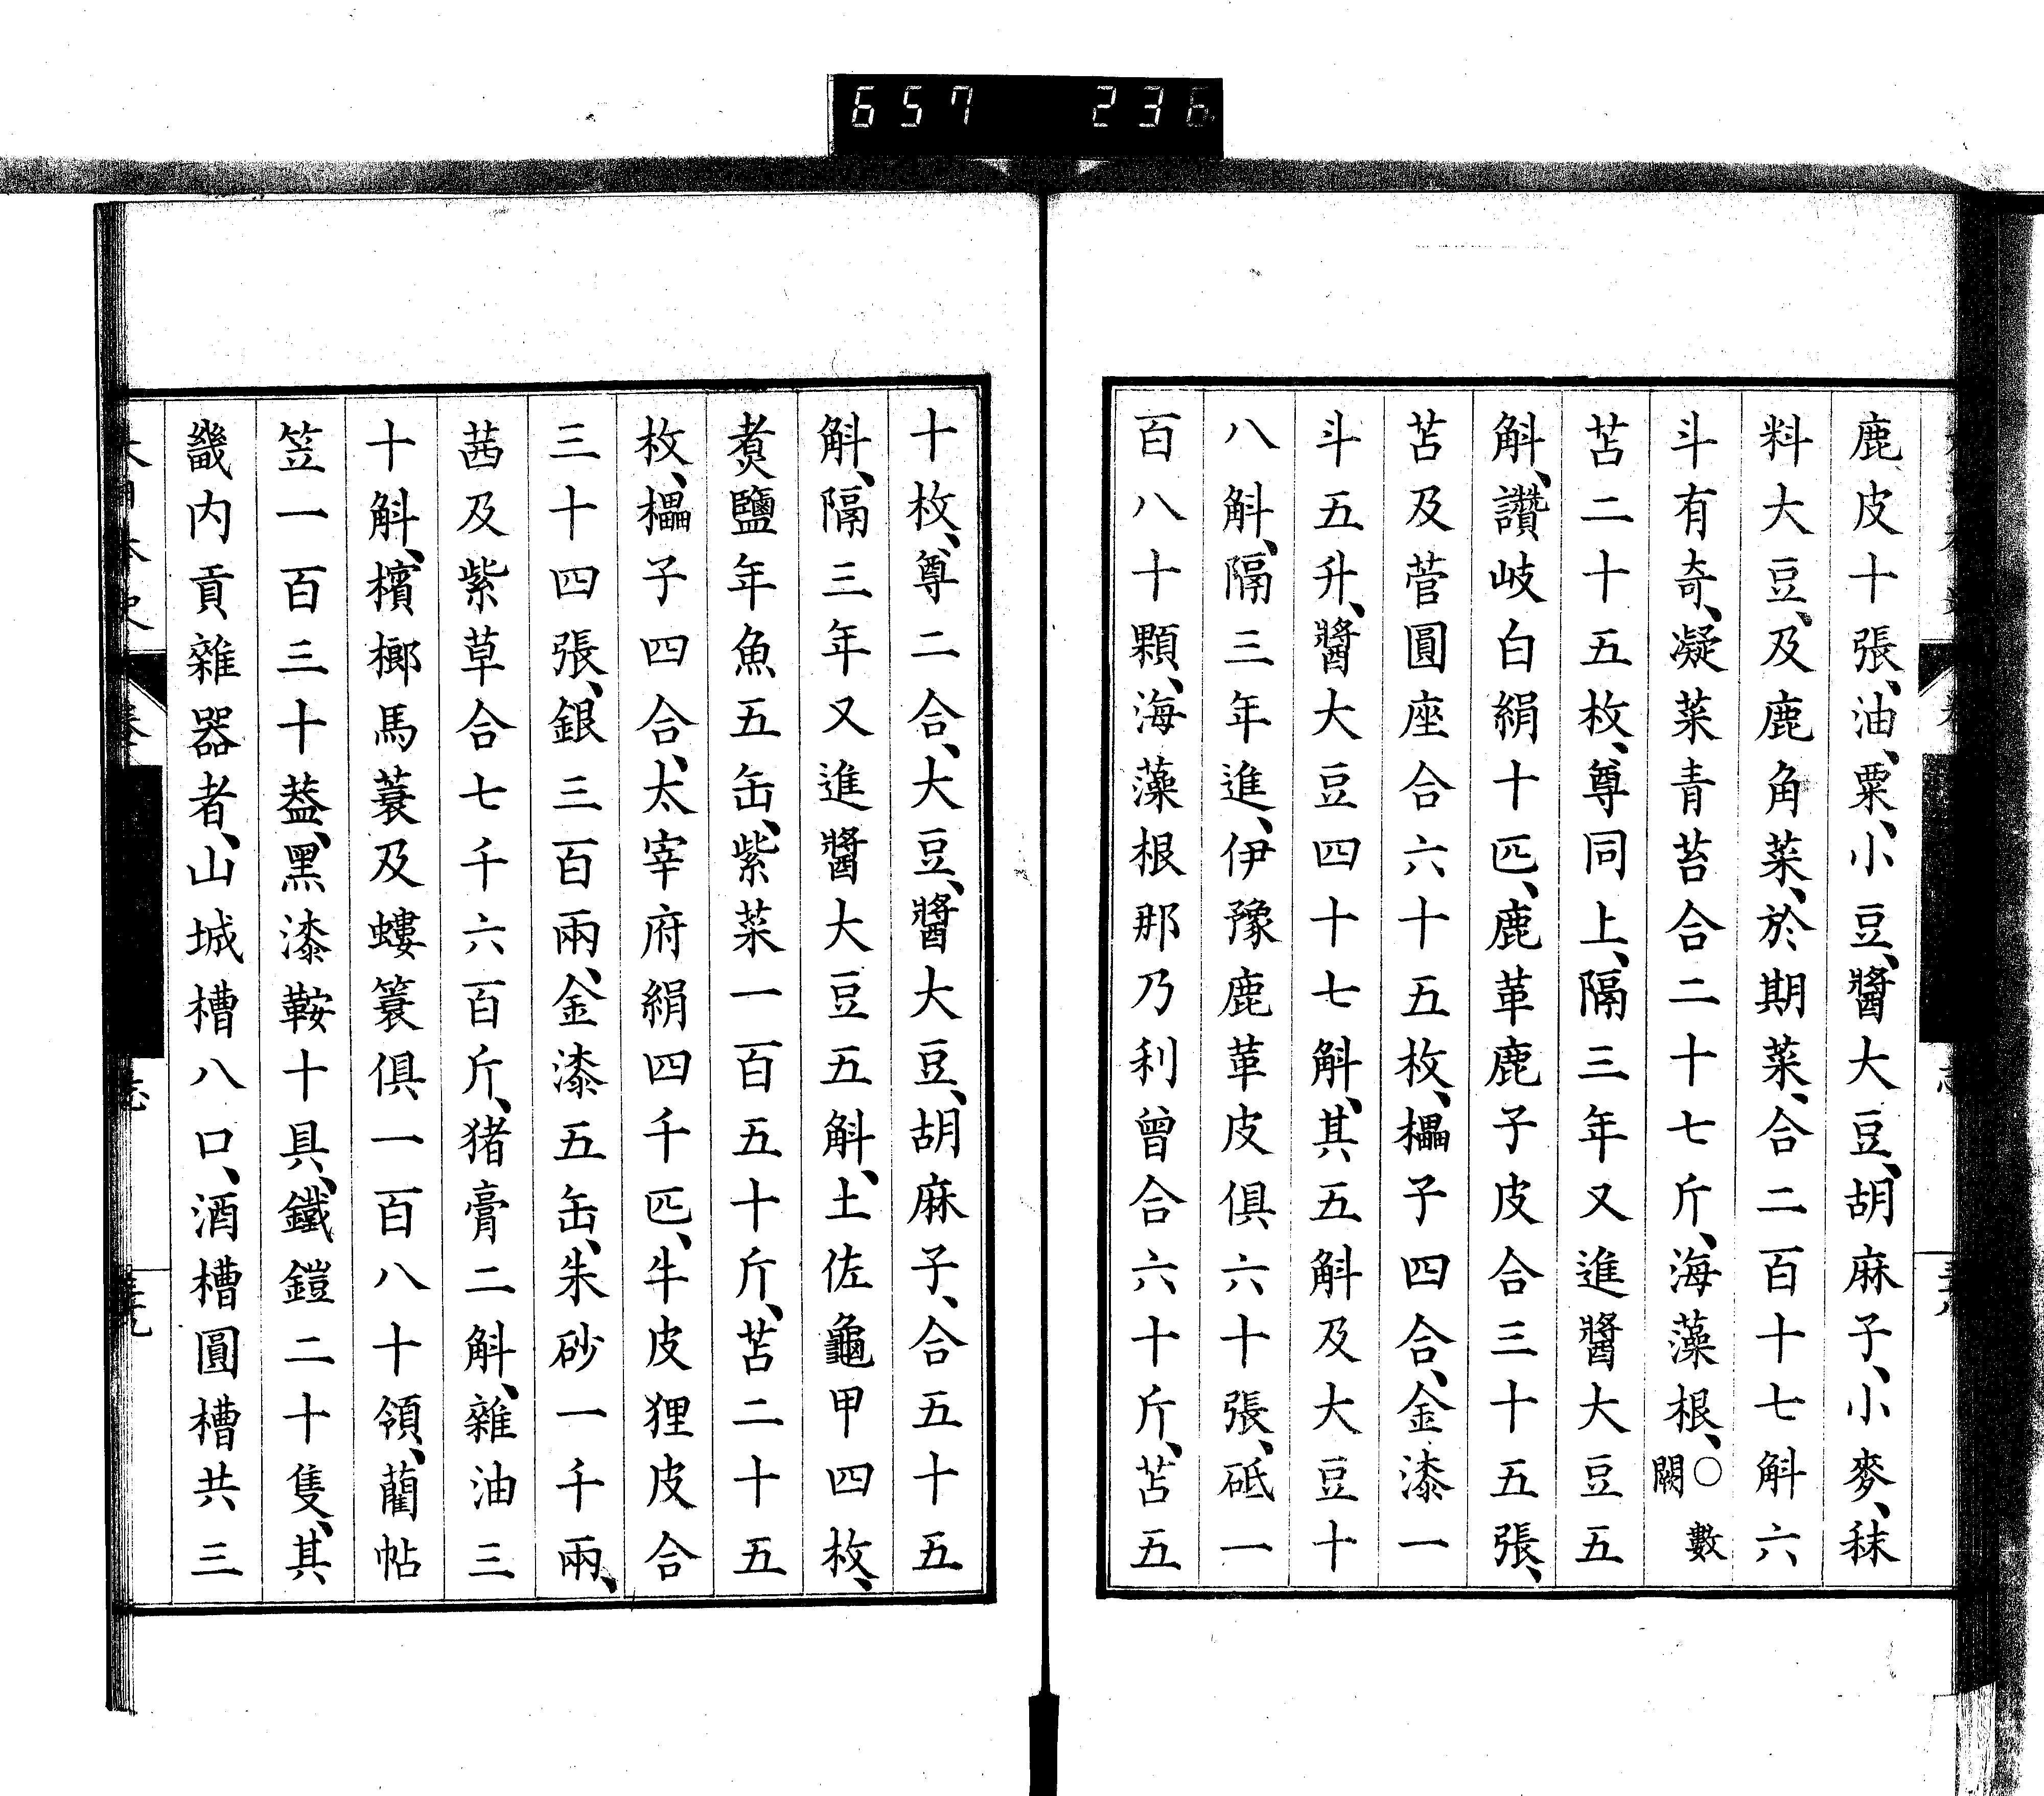 657 236
鹿皮十張、油、粟、小豆、醬大豆、胡麻子、小麥、秣
料大豆、及鹿角菜、於期菜、合二百十七斛六
斗有奇、凝菜青苔合二十七斤、海藻根、○數闕
苫二十五枚、尊同上、隔三年又進醬大豆五
斛、讚岐白絹十匹、鹿革鹿子皮合三十五張、
苫及菅圓座合六十五枚、櫑子四合、金漆一
斗五升、醬大豆四十七斛、其五斛及大豆十
八斛、隔三年進、伊豫鹿革皮俱六十張、砥一
百八十顆、海藻根那乃利曾合六十斤、苫五
十枚、尊二合、大豆、醬大豆、胡麻子、合五十五
斛、隔三年又進醬大豆五斛、土佐龜甲四枚、
煑鹽年魚五缶、紫菜一百五十斤、苫二十五
枚、櫑子四合、太宰府絹四千匹、牛皮狸皮合
三十四張、銀三百兩、金漆五缶、朱砂一千兩、
茜及紫草合七千六百斤、猪膏二斛、雜油三
十斛、檳榔馬蓑及螻簑俱一百八十領、藺帖
笠一百三十蓋、黑漆鞍十具、鐵鎧二十隻、其
畿內貢雜器者、山城槽八口、酒槽圓槽共三